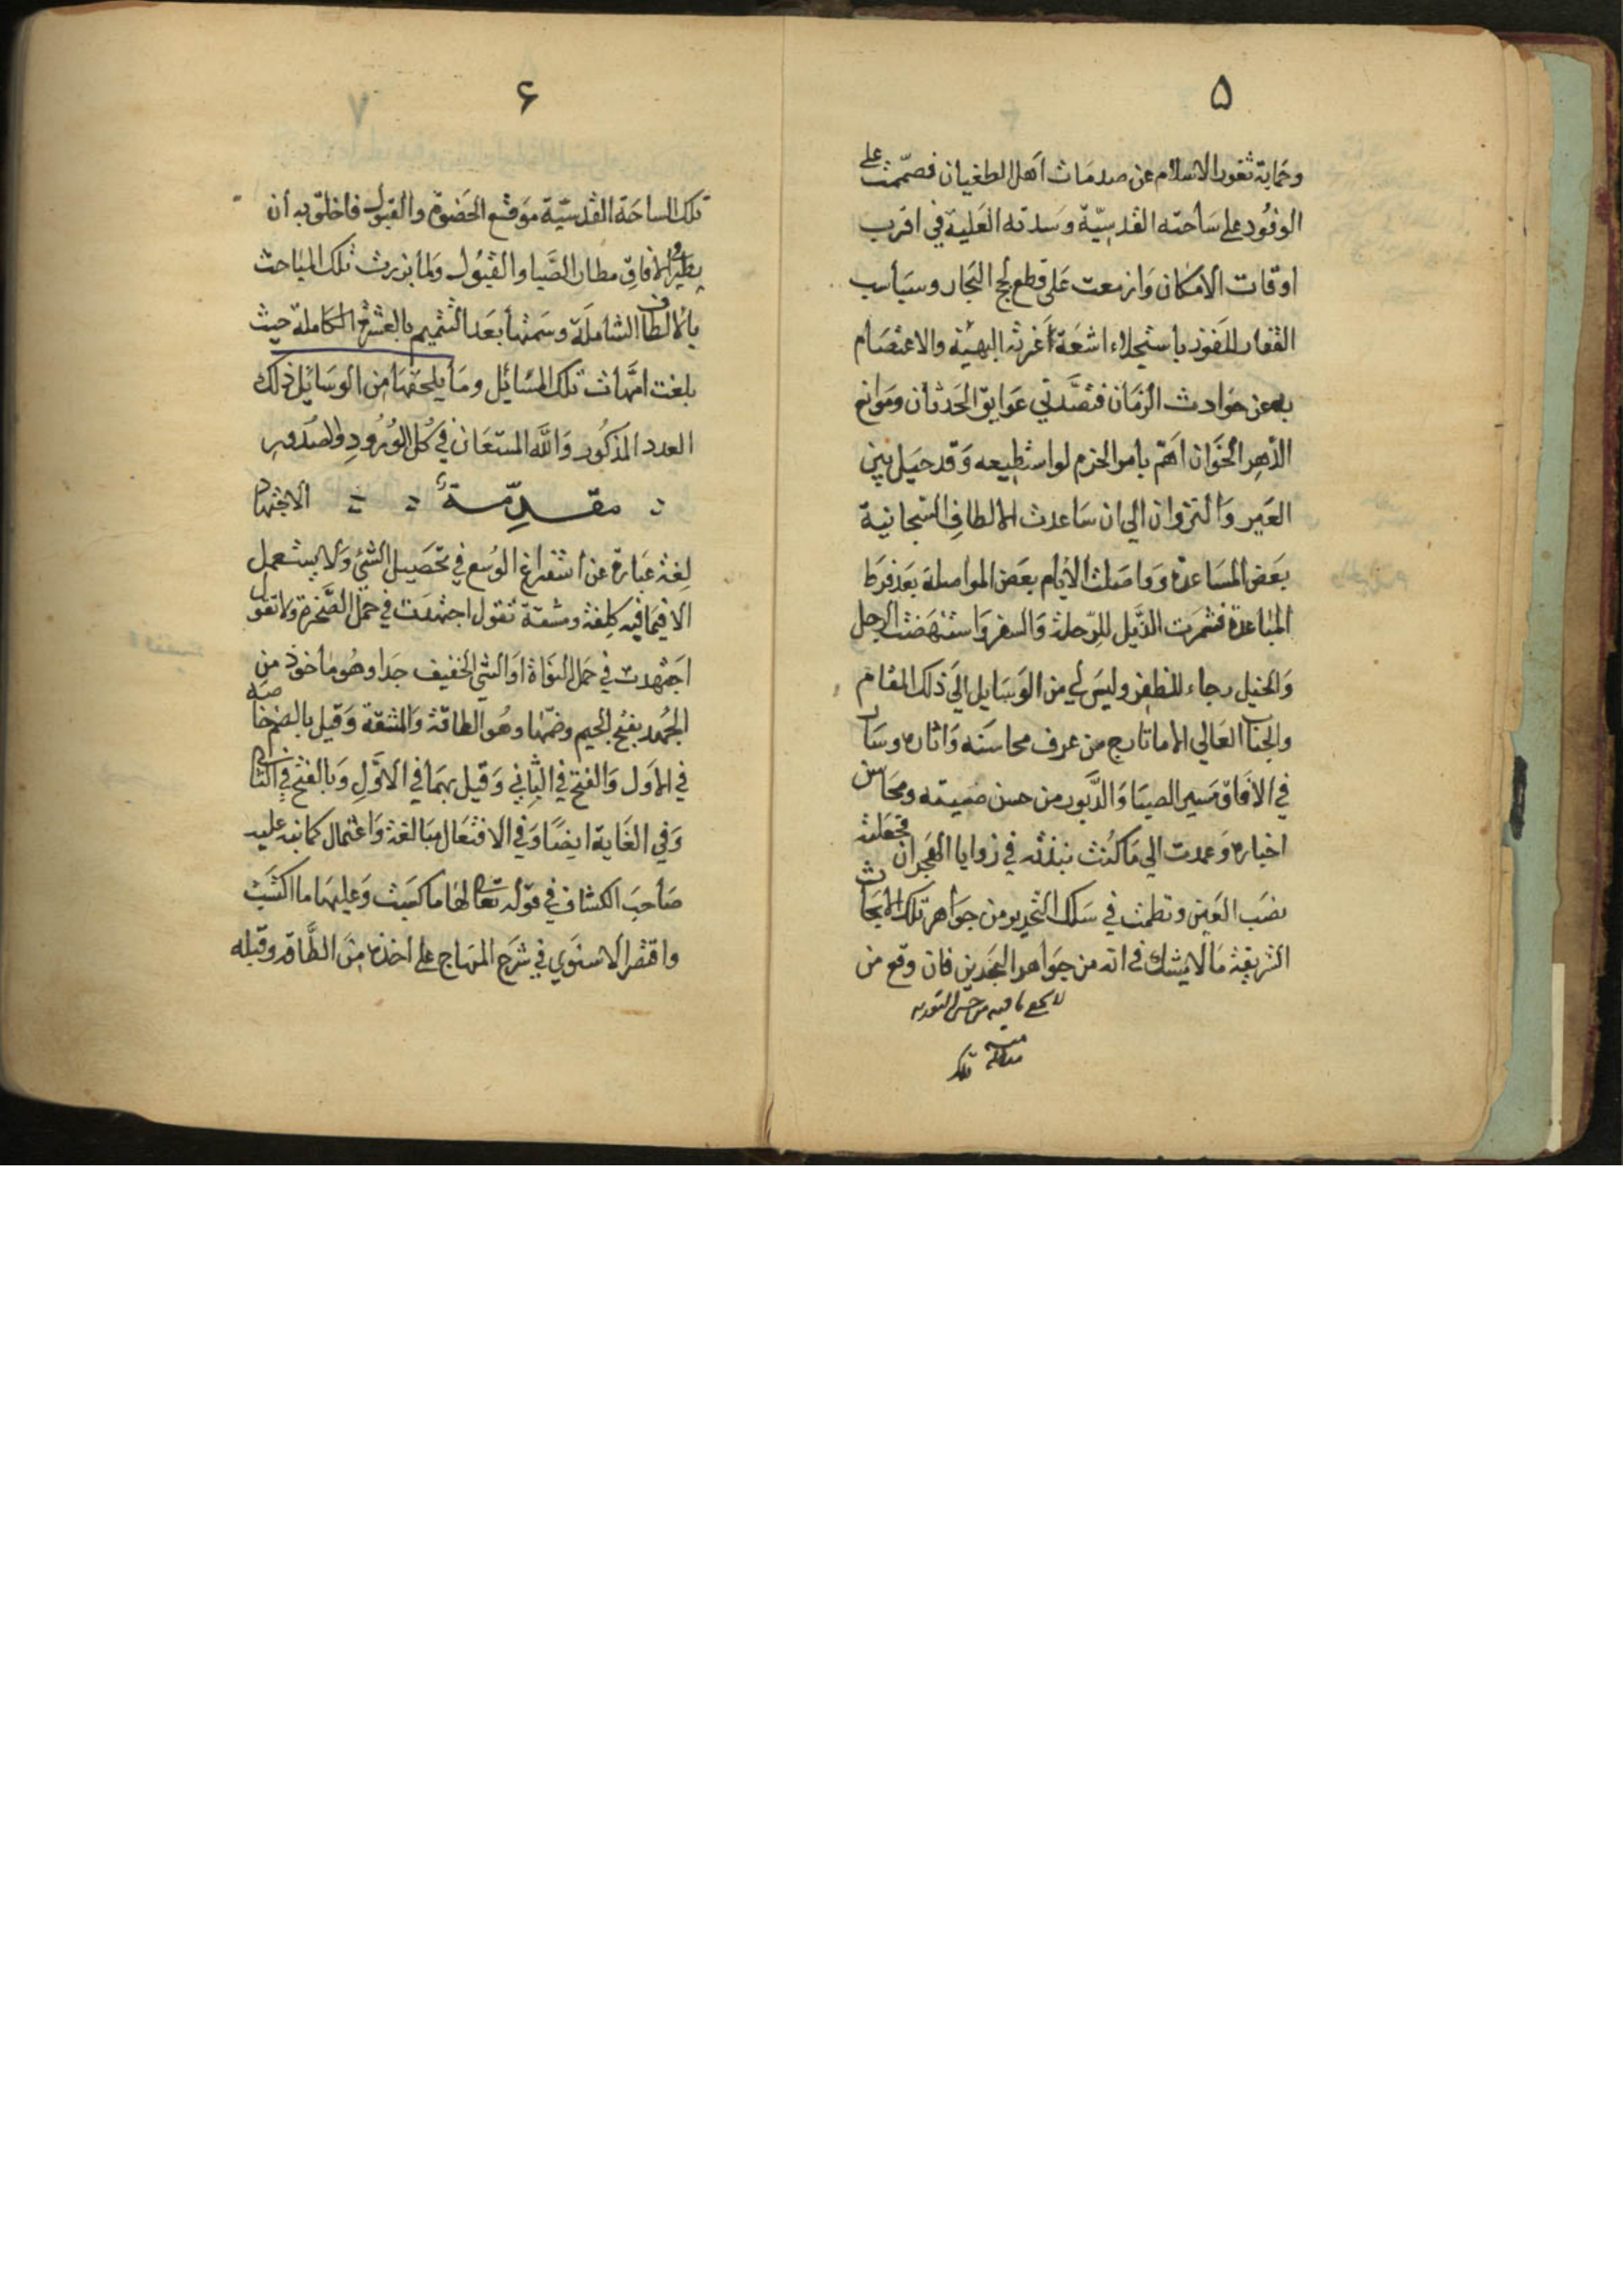 ۵
وحماية ثغور الاسلام عن صدمات اهل الطغيان فصممت على
الوفود على ساحته القدسيّة وسدته العلية في اقرب
اوقات الامكان وازمعت على قطع لجج البحار وسباسب
القفار للفوز باستجلاء اشعة غرته البهية والاعتصام
به عن حوادث الزمان فتصدني عوايق الحدثان وموانع
الدهر الخوان اهم بامر الحزم لو استطيعه وقد حيل بين
العير والنزوان الى ان ساعدت الالطاف السبحانية
بعض المساعدة وواصلت الايام بعض المواصلة بعد فرط
المباعدة فشمرت الذيل للرحلة والسفر واستنهضت الرجل
والخيل رجاء للظفر وليس لي من الوسايل الى ذلك المقام
والجناب العالي الا ما تارج من عرف محاسنه واثاره وسار
في الافاق مسير الصبا والدبور من حسن صيته ومحاسن
اخباره وعمدت الى ما كنت نبذته في زوايا الهجران فجعلته
نصب العين ونظمت في سلك التحرير من جواهر تلك الابحاث
الشريفة ما لا يشك في انه من جواهر البحرين فان وقع من
تلك
۶
تلك الساحة القدسيّة موقع الحضوة والقبول فاخلق به أن
يطير في الافاق مطار الصبا والقبول ولما برزت تلك المباحث
بالالطاف الشاملة وسمتها بعد التتميم بالعشرة الكاملة حيث
بلغت امّهات تلك المسائل وما يلحقها من الوسائل ذلك
العدد المذكور والله المستعان في كل الورود والصدور
مقدمة الاجتهاد
لغة عبارة عن استفراغ الوسع في تحصيل الشئ ولا يستعمل
الا فيما فيه كلفة ومشقة تقول اجتهدت في حمل الصخرة ولا تقول
اجتهدت في حمل النواة او الشئ الخفيف جدا وهو ماخوذ من
الجهد بفتح الجيم وضمها وهو الطاقة والمشقة وقيل بالضم خاصة
في الاول والفتح في الثاني وقيل بهما في الاول وبالفتح في الثاني
وفي الغاية ايضا وفي الافتعال مبالغة واعتمال كما نبه عليه
صاحب الكشاف في قوله تعالى لها ما كسبت وعليها ما اكتسبت
واقتصر الاسنوي في شرح المنهاج على اخذه من الطاقة وقبله